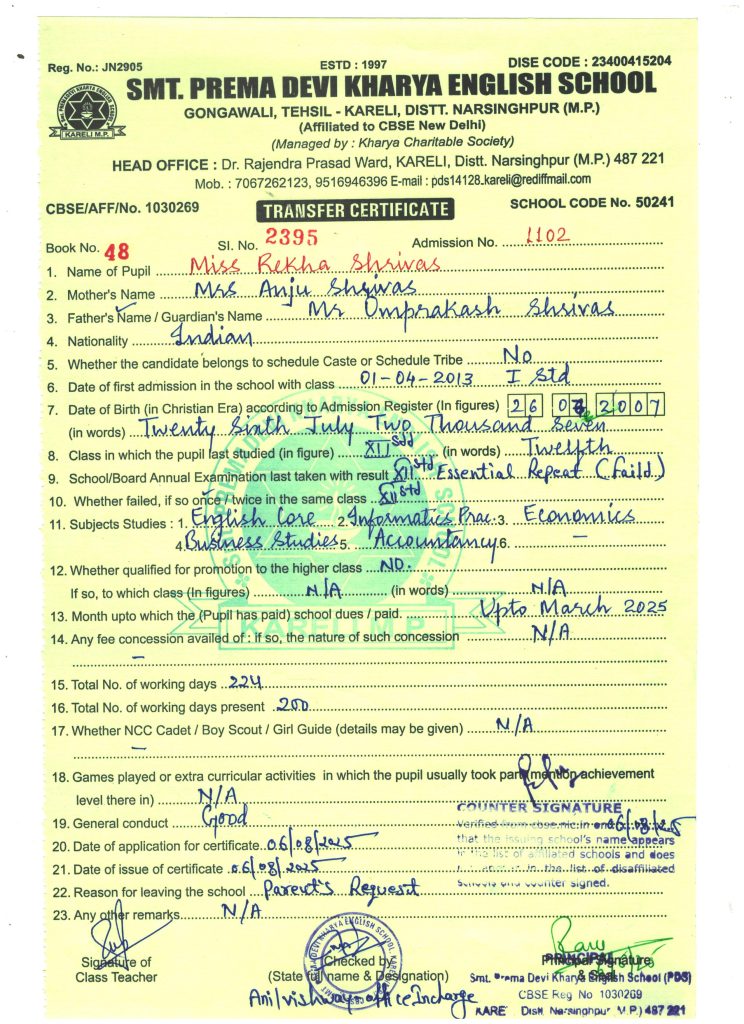 Reg. No.: JN2905 ESTD : 1997 DISE CODE : 23400415204
SMT. PREMA DEVI KHARYA ENGLISH SCHOOL
GONGAWALI, TEHSIL - KARELI, DISTT. NARSINGHPUR (M.P.)
(Affiliated to CBSE New Delhi)
(Managed by : Kharya Charitable Society)
KARELI M.P.
HEAD OFFICE : Dr. Rajendra Prasad Ward, KARELI, Distt. Narsinghpur (M.P.) 487 221
Mob. : 7067262123, 9516946396 E-mail : pds14128.kareli@rediffmail.com
CBSE/AFF/No. 1030269 TRANSFER CERTIFICATE SCHOOL CODE No. 50241
Book No. 48 Sl. No. 2395 Admission No. 1102
1. Name of Pupil Miss Rekha Shrivas
2. Mother's Name Mrs Anju Shrivas
3. Father's Name / Guardian's Name Mr Omprakash Shrivas
4. Nationality Indian
5. Whether the candidate belongs to schedule Caste or Schedule Tribe No
6. Date of first admission in the school with class 01-04-2013 I Std
7. Date of Birth (in Christian Era) according to Admission Register (In figures) 26 07 2007
(in words) Twenty Sixth July Two Thousand Seven
8. Class in which the pupil last studied (in figure) XII std (in words) Twelfth
9. School/Board Annual Examination last taken with result XII std Essential Repeat (Faild)
10. Whether failed, if so once / twice in the same class XII std
11. Subjects Studies : 1. English Core 2. Informatics Prac. 3. Economics
4. Business Studies 5. Accountancy 6. –
12. Whether qualified for promotion to the higher class NO.
If so, to which class (In figures) N/A (in words) N/A
13. Month upto which the (Pupil has paid) school dues / paid. Upto March 2025
KARELI M.P.
14. Any fee concession availed of : if so, the nature of such concession N/A
–
15. Total No. of working days 224
16. Total No. of working days present 200
17. Whether NCC Cadet / Boy Scout / Girl Guide (details may be given) N/A
–
18. Games played or extra curricular activities in which the pupil usually took part (mention achievement
level there in) N/A
19. General conduct Good
COUNTER SIGNATURE
06/08/25
Verified from cbse.nic.in and
that the issuing school's name appears
in the list of affiliated schools and does
in the list of disaffiliated
schools and counter signed.
20. Date of application for certificate 06/08/2025
21. Date of issue of certificate 06/08/2025
22. Reason for leaving the school Parent's Request
23. Any other remarks N/A
Signature of
Class Teacher
Checked by
(State full name & Designation)
office Incharge
Principal Signature
& Seal
PRINCIPAL
Smt. Prema Devi Kharya English School (PDS)
CBSE Reg No 1030269
KARE Distt. Narsinghpur M.P.) 487 221